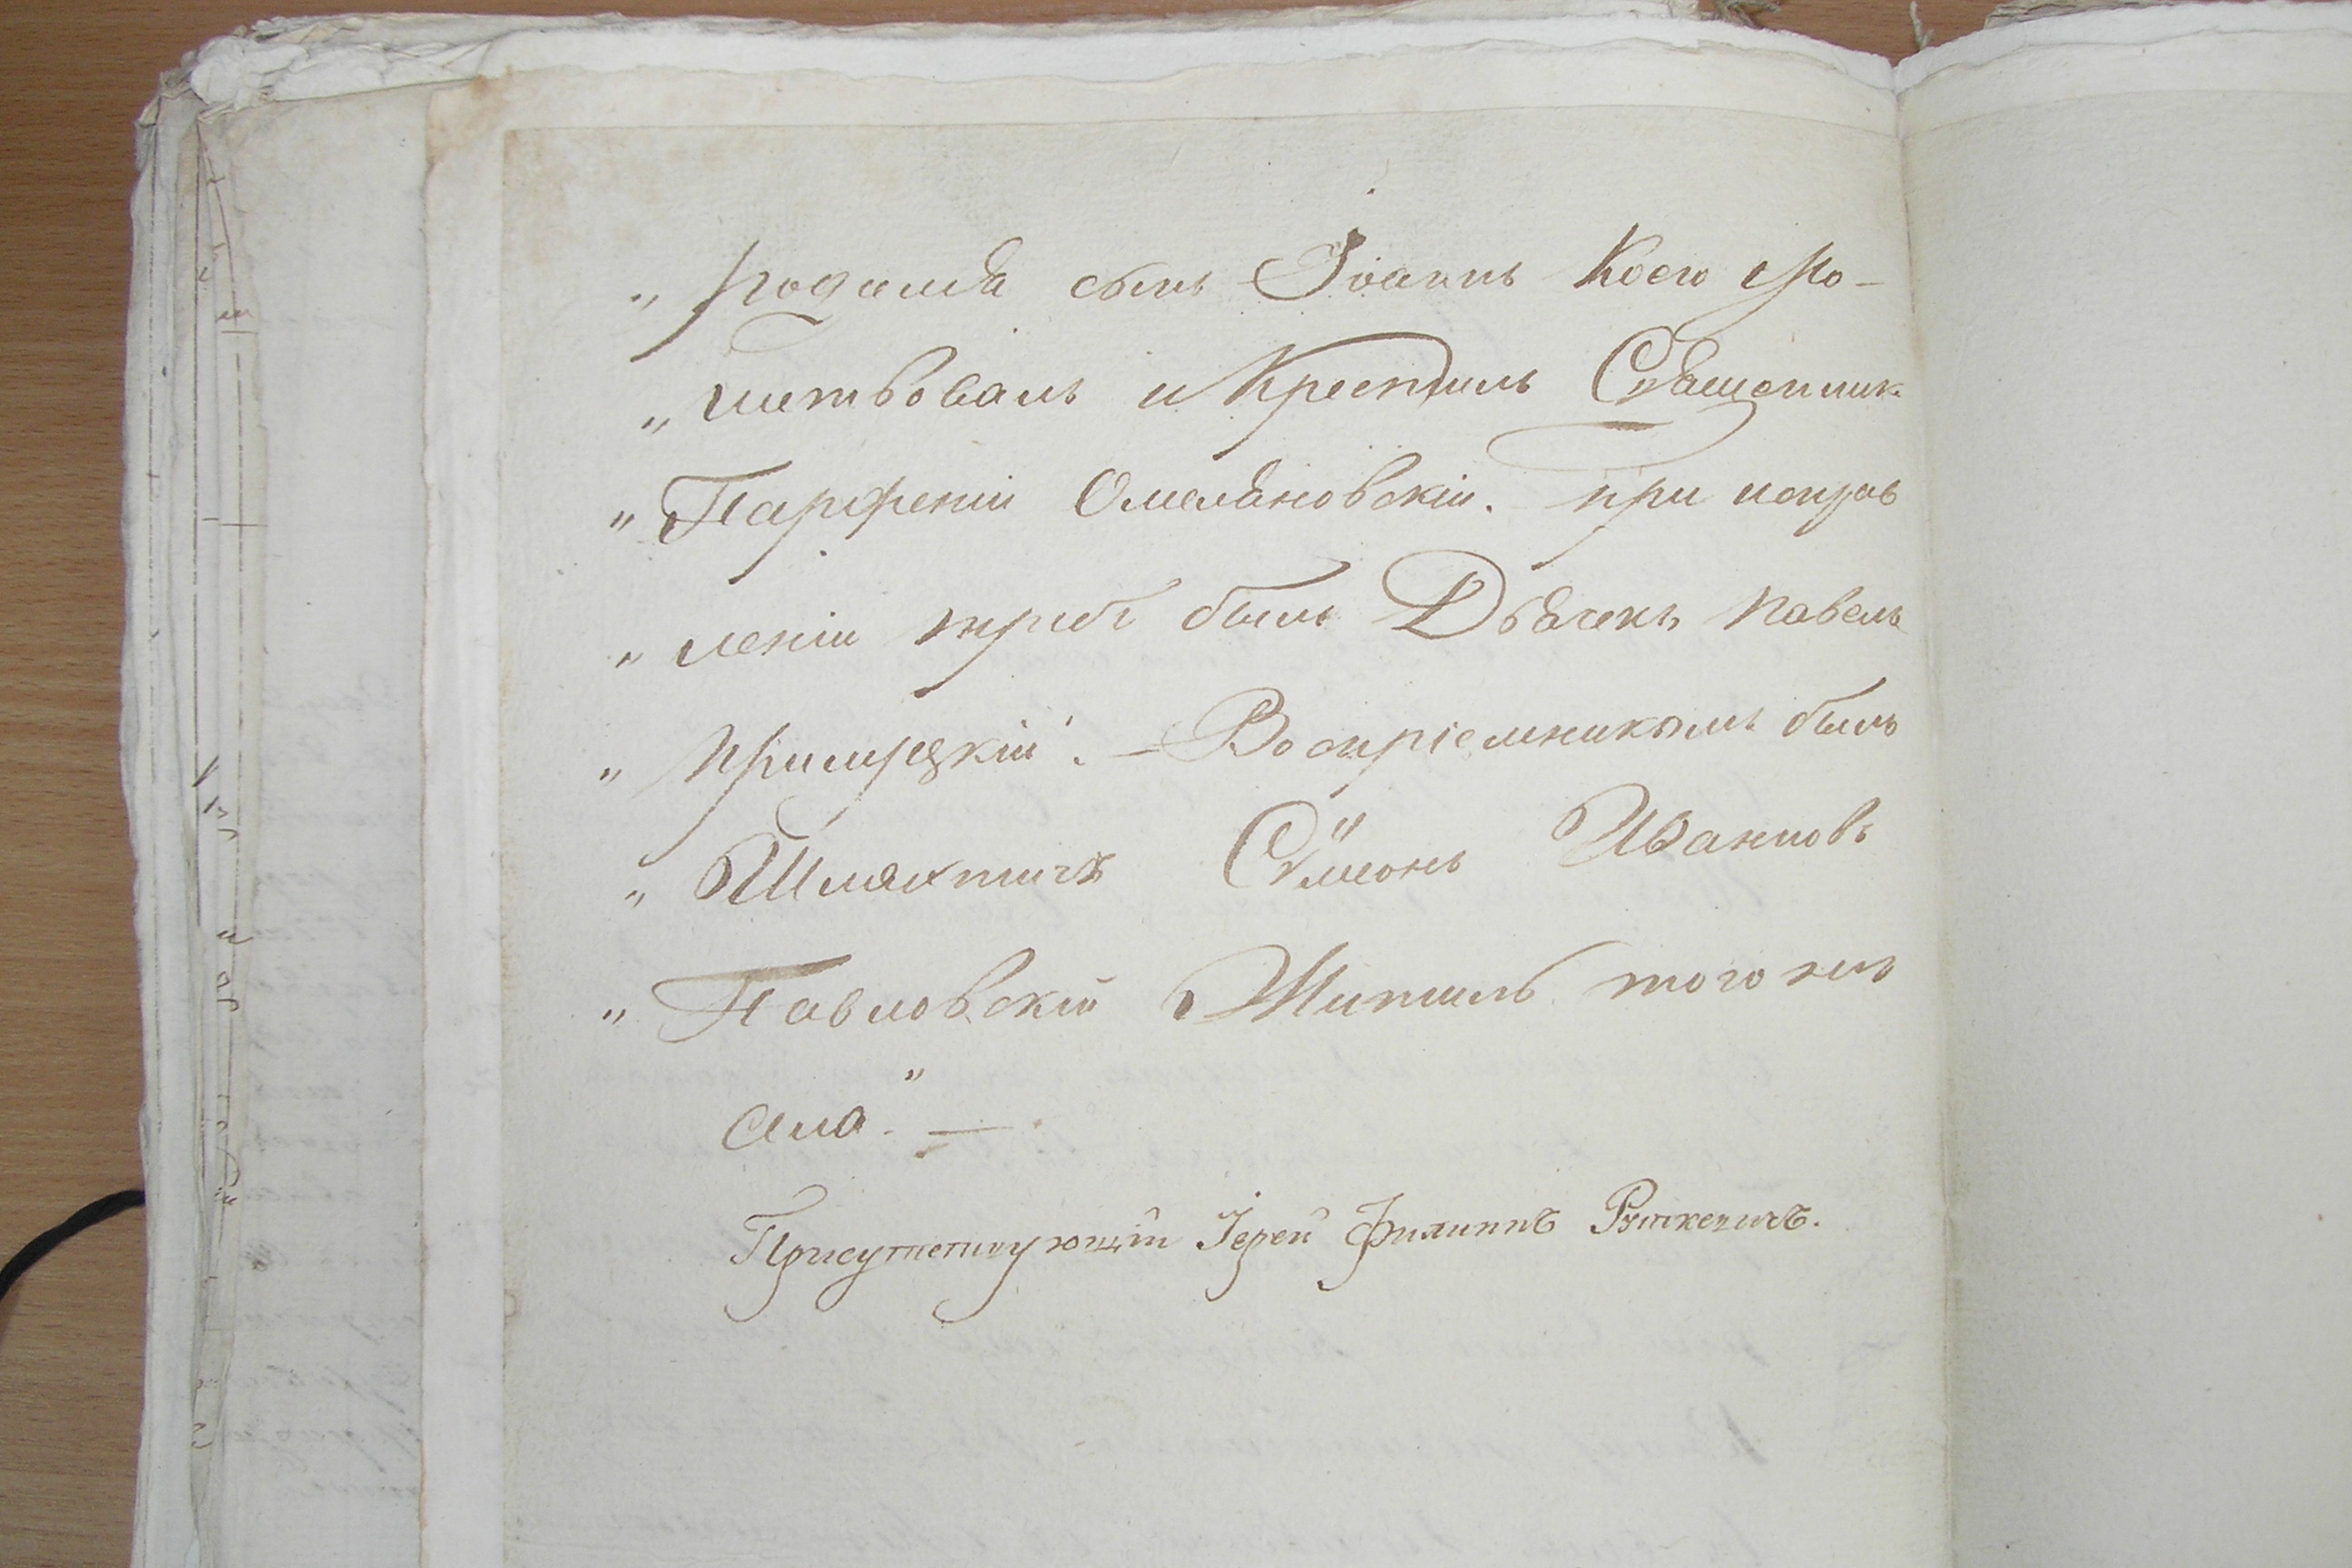 „ родился сынъ Іоаннъ Коего Мо-
„ литвовалъ и Крестилъ Священник
„ Парфеній Омеляновскій. При исправ
„ леніи требъ былъ Дьячекъ Павелъ
„ Кришрецкій. — Воспріемникомъ былъ
„ Шляхтичъ Сѵмеонъ Ивановъ
„ Павловскій Житель того же
села „ —
Присутствующій Іерей Филиппъ Руткевичъ.